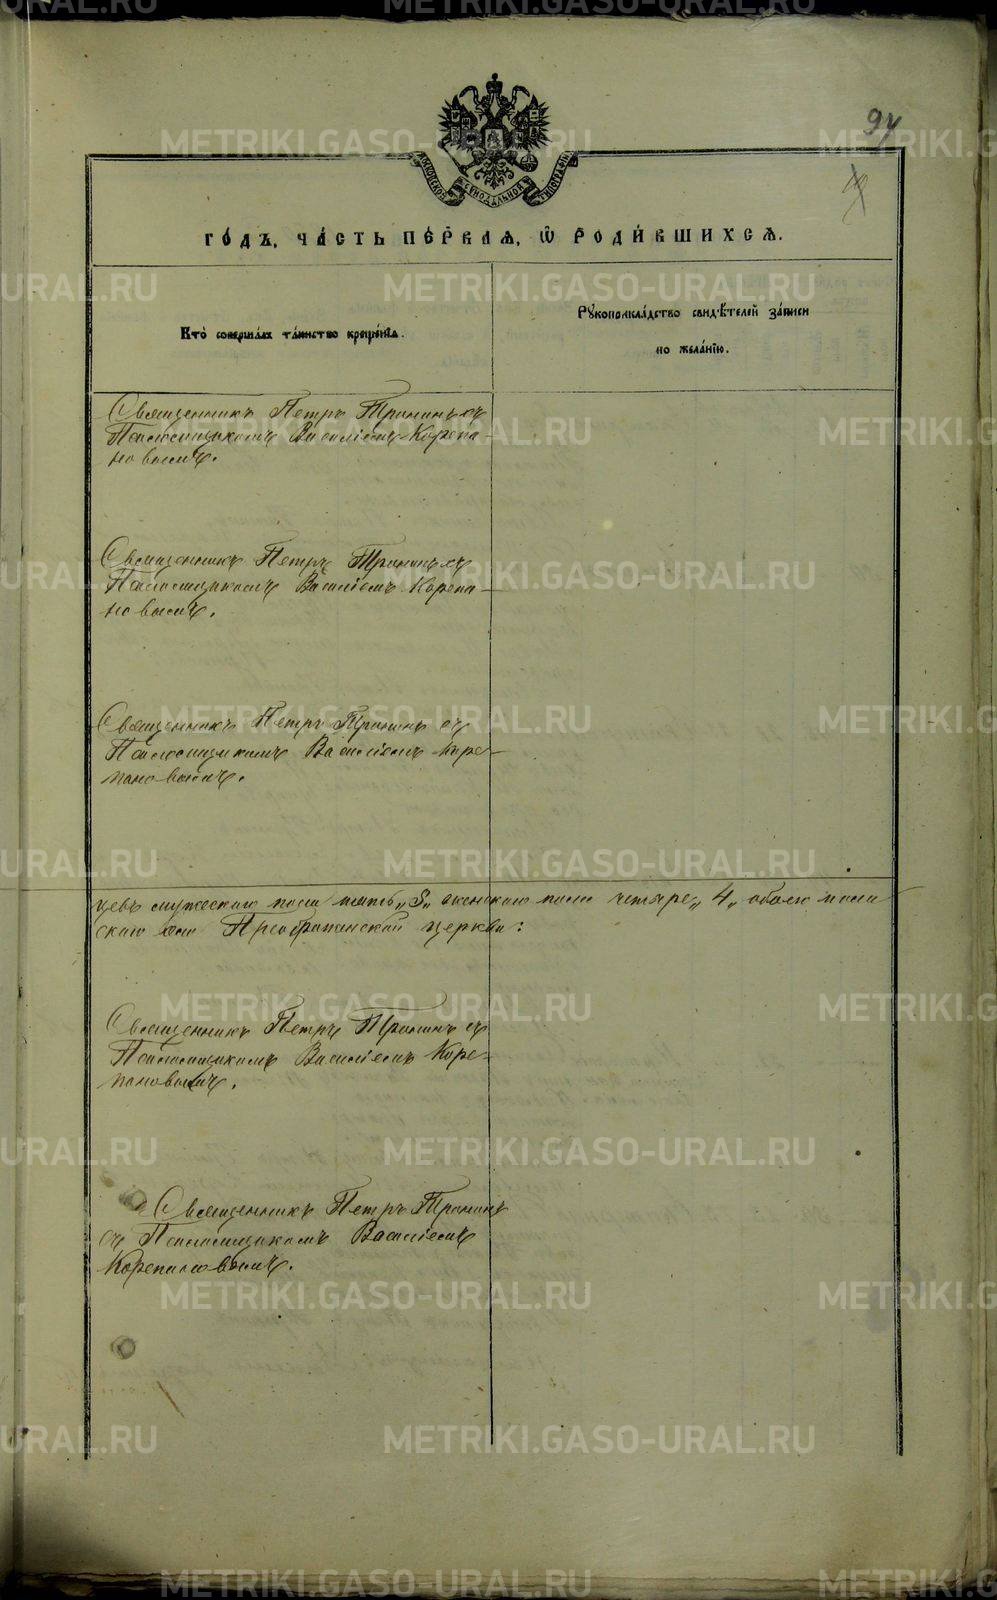 94
МОСКОВСКОЙ СѴНОДАЛЬНОЙ ТИПОГРАФІИ
ГО́ДЪ, ЧА́СТЬ ПЕ́РВАЯ, Ѡ РОДИ́ВШИХСЯ.
Кто̀ соверша́лъ та́инство креще́нїѧ.
Рꙋкоприкла́дство свидѣ́телей за́писи
по жела́нїю.
Священникъ Петръ Тронинъ съ
Псаломщикомъ Василіемъ Корепа-
новымъ.
Священникъ Петръ Тронинъ съ
Псаломщикомъ Василіемъ Корепа-
новымъ.
Священникъ Петръ Тронинъ съ
Псаломщикомъ Василіемъ Коре-
пановымъ.
цевъ мужескаго пола пять „5„ женскаго пола четыре „4„ обоего пола
Преображенской церкви:
Священникъ Петръ Тронинъ съ
Псаломщикомъ Василіемъ Коре-
пановымъ.
Священникъ Петръ Тронинъ
съ Псаломщикомъ Василіемъ
Корепановымъ.
METRIKI.GASO-URAL.RU